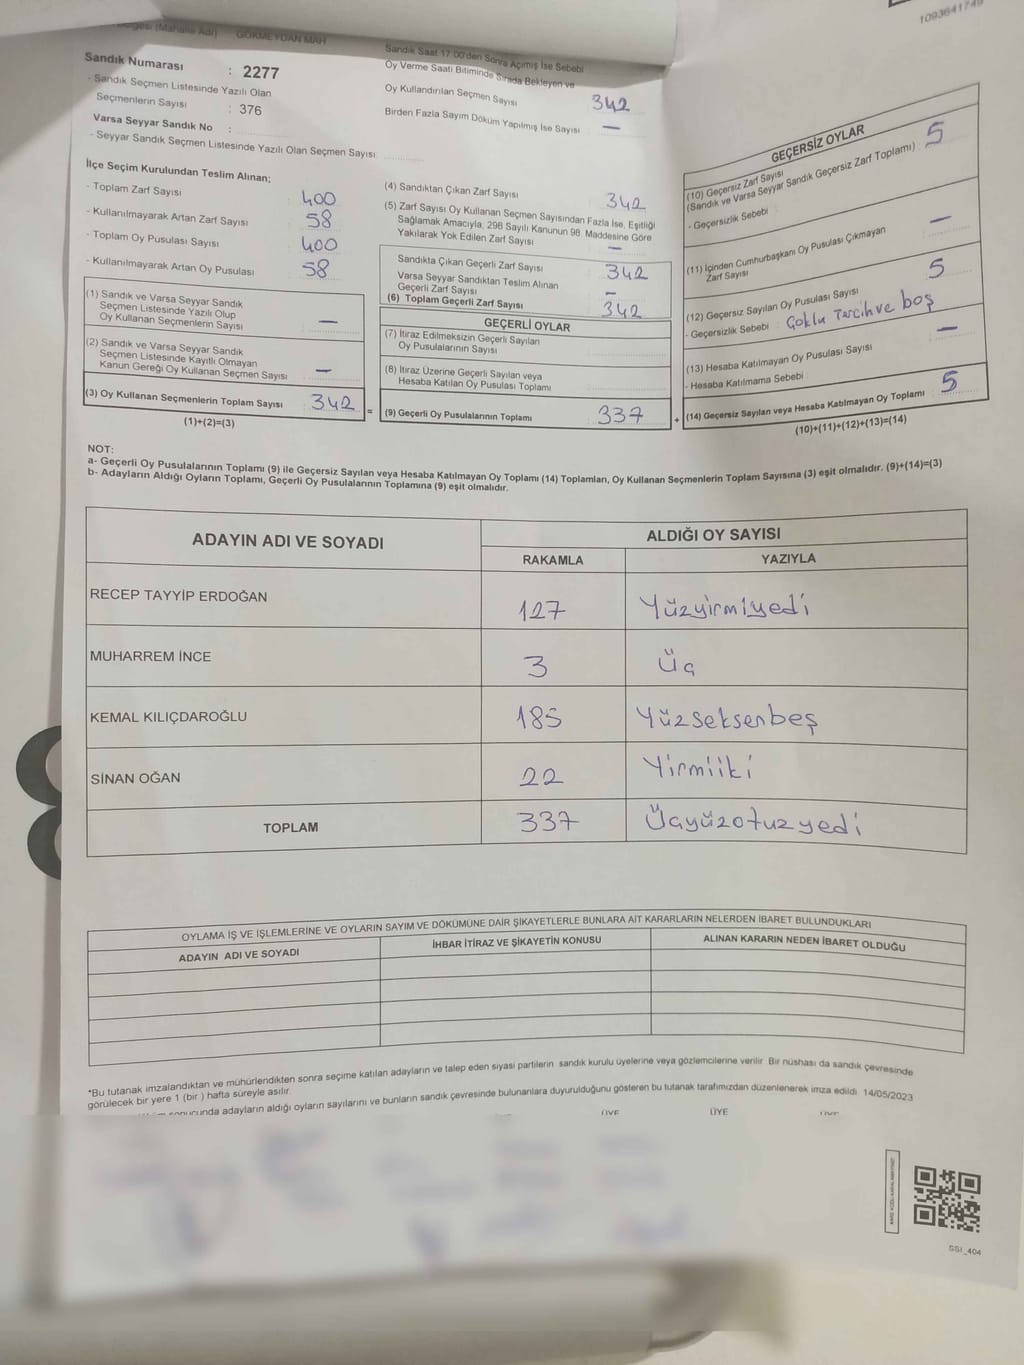 1093641749
GÖKMEYDAN MAH
Sandık Numarası : 2277
- Sandık Seçmen Listesinde Yazılı Olan
Seçmenlerin Sayısı : 376
Varsa Seyyar Sandık No :
- Seyyar Sandık Seçmen Listesinde Yazılı Olan Seçmen Sayısı
İlçe Seçim Kurulundan Teslim Alınan;
- Toplam Zarf Sayısı 400
- Kullanılmayarak Artan Zarf Sayısı 58
- Toplam Oy Pusulası Sayısı 400
- Kullanılmayarak Artan Oy Pusulası 58
(1) Sandık ve Varsa Seyyar Sandık
Seçmen Listesinde Yazılı Olup
Oy Kullanan Seçmenlerin Sayısı —
(2) Sandık ve Varsa Seyyar Sandık
Seçmen Listesinde Kayıtlı Olmayan
Kanun Gereği Oy Kullanan Seçmen Sayısı —
(3) Oy Kullanan Seçmenlerin Toplam Sayısı 342 =
(1)+(2)=(3)
Sandık Saat 17:00'den Sonra Açımış İse Sebebi
Oy Verme Saati Bitiminde Sırada Bekleyen ve
Oy Kullandırılan Seçmen Sayısı 342
Birden Fazla Sayım Döküm Yapılmış İse Sayısı —
(4) Sandıktan Çıkan Zarf Sayısı 342
(5) Zarf Sayısı Oy Kullanan Seçmen Sayısından Fazla İse, Eşitliği
Sağlamak Amacıyla, 298 Sayılı Kanunun 98. Maddesine Göre
Yakılarak Yok Edilen Zarf Sayısı —
Sandıkta Çıkan Geçerli Zarf Sayısı 342
Varsa Seyyar Sandıktan Teslim Alınan
Geçerli Zarf Sayısı —
(6) Toplam Geçerli Zarf Sayısı 342
GEÇERLİ OYLAR
(7) İtiraz Edilmeksizin Geçerli Sayılan
Oy Pusulalarının Sayısı
(8) İtiraz Üzerine Geçerli Sayılan veya
Hesaba Katılan Oy Pusulası Toplamı
(9) Geçerli Oy Pusulalarının Toplamı 337 +
GEÇERSİZ OYLAR
(10) Geçersiz Zarf Sayısı
(Sandık ve Varsa Seyyar Sandık Geçersiz Zarf Toplamı) 5
- Geçersizlik Sebebi :
(11) İçinden Cumhurbaşkanı Oy Pusulası Çıkmayan
Zarf Sayısı —
(12) Geçersiz Sayılan Oy Pusulası Sayısı 5
- Geçersizlik Sebebi : Çoklu Tercih ve boş
(13) Hesaba Katılmayan Oy Pusulası Sayısı —
- Hesaba Katılmama Sebebi :
(14) Geçersiz Sayılan veya Hesaba Katılmayan Oy Toplamı 5
(10)+(11)+(12)+(13)=(14)
NOT:
a- Geçerli Oy Pusulalarının Toplamı (9) ile Geçersiz Sayılan veya Hesaba Katılmayan Oy Toplamı (14) Toplamları, Oy Kullanan Seçmenlerin Toplam Sayısına (3) eşit olmalıdır. (9)+(14)=(3)
b- Adayların Aldığı Oyların Toplamı, Geçerli Oy Pusulalarının Toplamına (9) eşit olmalıdır.
ADAYIN ADI VE SOYADI
ALDIĞI OY SAYISI
RAKAMLA YAZIYLA
RECEP TAYYİP ERDOĞAN 127 Yüzyirmiyedi
MUHARREM İNCE 3 Üç
KEMAL KILIÇDAROĞLU 185 Yüzseksenbeş
SİNAN OĞAN 22 Yirmiiki
TOPLAM 337 Üçyüzotuzyedi
OYLAMA İŞ VE İŞLEMLERİNE VE OYLARIN SAYIM VE DÖKÜMÜNE DAİR ŞİKAYETLERLE BUNLARA AİT KARARLARIN NELERDEN İBARET BULUNDUKLARI
ADAYIN ADI VE SOYADI İHBAR İTİRAZ VE ŞİKAYETİN KONUSU ALINAN KARARIN NEDEN İBARET OLDUĞU
*Bu tutanak imzalandıktan ve mühürlendikten sonra seçime katılan adayların ve talep eden siyasi partilerin sandık kurulu üyelerine veya gözlemcilerine verilir. Bir nüshası da sandık çevresinde
görülecek bir yere 1 (bir) hafta süreyle asılır.
sonucunda adayların aldığı oyların sayılarını ve bunların sandık çevresinde bulunanlara duyurulduğunu gösteren bu tutanak tarafımızdan düzenlenerek imza edildi. 14/05/2023
ÜYE ÜYE ÜYE
SSI_404